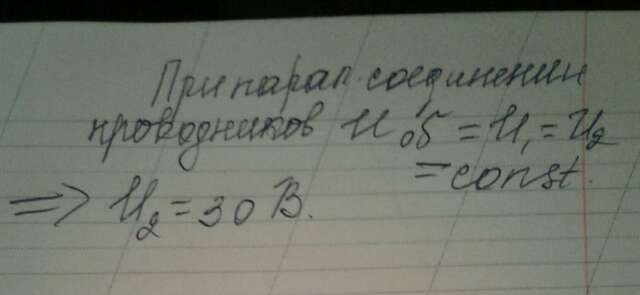 При парал. соединении
проводников U об = U₁ = U₂
= const.
=> U₂ = 30 В.